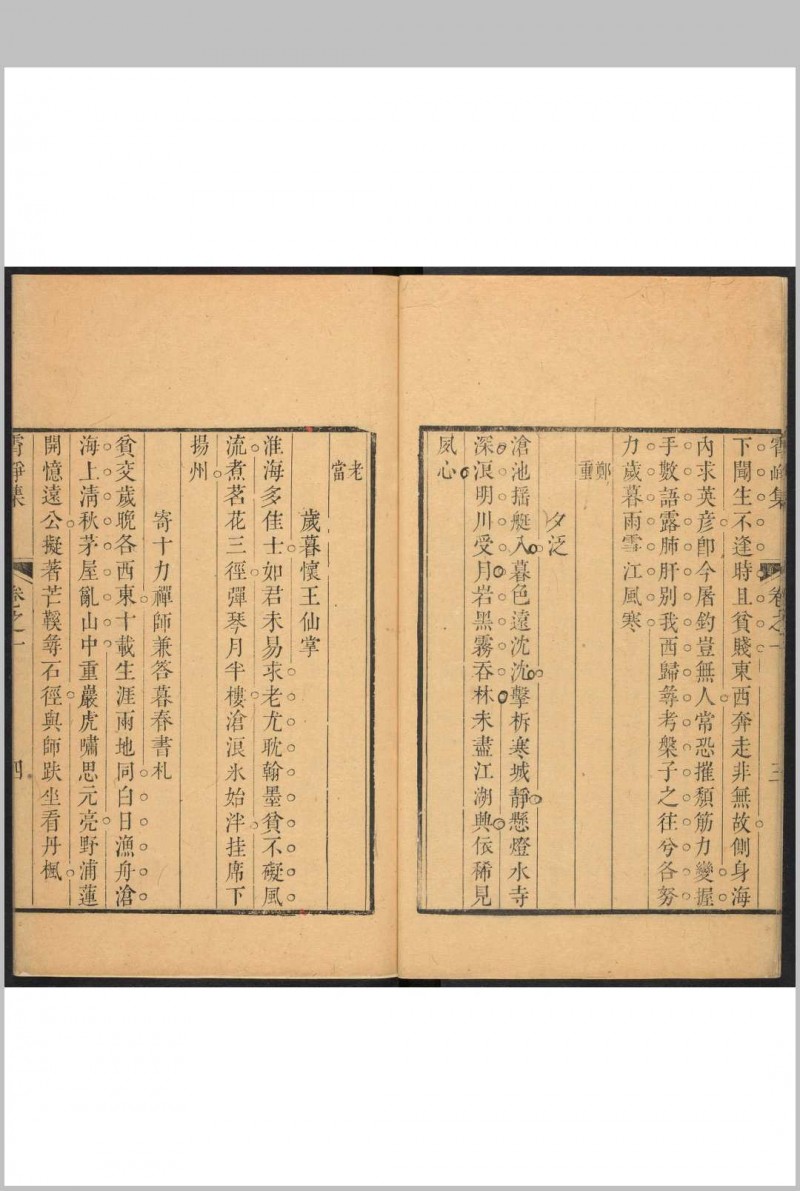 霄崢集 卷之一 三
下聞生不逢時且貧賤東西奔走非無故側身海
內求英彦卽今屠釣豈無人常恐摧頽筋力變握
手數語露肺肝別我西歸尋考槃子之往兮各努
力歲暮雨雪江風寒
鄭
重
夕泛
滄池揺艇入暮色遠沈沈擊柝寒城靜懸燈水寺
深浪明川受月岩黑霧吞林未盡江湖興依稀見
夙心
老
當
歲暮懷王仙掌
淮海多佳士如君未易求老尤耽翰墨貧不礙風
流煮茗花三徑彈琴月半樓滄浪氷始泮挂席下
揚州
寄十力禪師兼答暮春書札
貧交歲晩各西東十載生涯兩地同白日漁舟滄
海上清秋茅屋亂山中重巖虎嘯思元亮野浦蓮
開憶遠公擬著芒鞵尋石徑與師趺坐看丹楓
霄崢集 卷之一 四